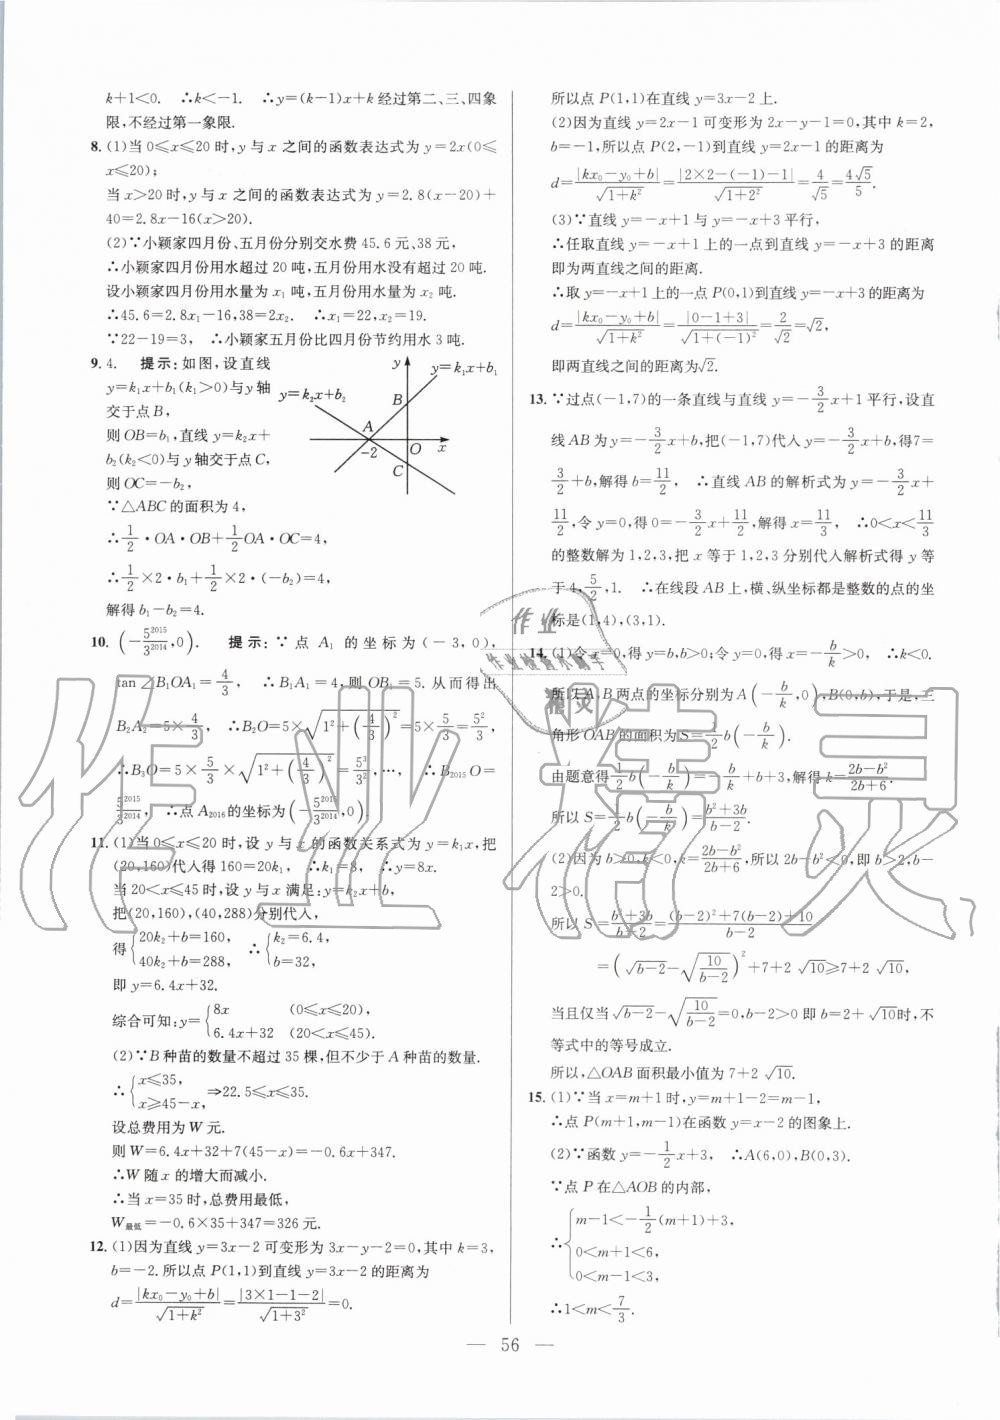 k+1<0. ∴k<-1. ∴y=(k-1)x+k经过第二、三、四象
限,不经过第一象限.
8. (1)当 0≤x≤20 时,y 与 x 之间的函数表达式为 y=2x(0≤
x≤20);
当 x>20 时,y 与 x 之间的函数表达式为 y=2.8(x-20)+
40=2.8x-16(x>20).
(2)∵小颖家四月份、五月份分别交水费 45.6 元、38 元,
∴小颖家四月份用水超过 20 吨,五月份用水没有超过 20 吨.
设小颖家四月份用水量为 x₁ 吨,五月份用水量为 x₂ 吨.
∴45.6=2.8x₁-16,38=2x₂. ∴x₁=22,x₂=19.
∵22-19=3, ∴小颖家五月份比四月份节约用水 3 吨.
9. 4. 提示:如图,设直线
y=k₁x+b₁(k₁>0)与 y 轴
交于点 B,
则 OB=b₁,直线 y=k₂x+
b₂(k₂<0)与 y 轴交于点 C,
则 OC=-b₂,
∵△ABC 的面积为 4,
∴1/2·OA·OB+1/2OA·OC=4,
∴1/2×2·b₁+1/2×2·(-b₂)=4,
解得 b₁-b₂=4.
y
y=k₁x+b₁
y=k₂x+b₂
B
A
-2
O
x
C
10. (-5²⁰¹⁵/3²⁰¹⁴,0). 提示:∵点 A₁ 的坐标为(-3,0),
tan∠B₁OA₁=4/3, ∴B₁A₁=4,则 OB₁=5. 从而得出
B₂A₂=5×4/3, ∴B₂O=5×√(1²+(4/3)²)=5×5/3=5²/3,
∴B₃O=5×5/3×√(1²+(4/3)²)=5³/3²,…, ∴B₂₀₁₅O=
5²⁰¹⁵/3²⁰¹⁴, ∴点 A₂₀₁₆ 的坐标为(-5²⁰¹⁵/3²⁰¹⁴,0).
11. (1)当 0≤x≤20 时,设 y 与 x 的函数关系式为 y=k₁x,把
(20,160)代入得 160=20k₁, ∴k₁=8, ∴y=8x.
当 20<x≤45 时,设 y 与 x 满足:y=k₂x+b,
把(20,160),(40,288)分别代入,
得{20k₂+b=160, 40k₂+b=288, ∴{k₂=6.4, b=32,
即 y=6.4x+32.
综合可知:y={8x (0≤x≤20), 6.4x+32 (20<x≤45).
(2)∵B 种苗的数量不超过 35 棵,但不少于 A 种苗的数量.
∴{x≤35, x≥45-x, ⇒22.5≤x≤35.
设总费用为 W 元.
则 W=6.4x+32+7(45-x)=-0.6x+347.
∴W 随 x 的增大而减小.
∴当 x=35 时,总费用最低,
W最低=-0.6×35+347=326 元.
12. (1)因为直线 y=3x-2 可变形为 3x-y-2=0,其中 k=3,
b=-2.所以点 P(1,1)到直线 y=3x-2 的距离为
d=|kx₀-y₀+b|/√(1+k²)=|3×1-1-2|/√(1+3²)=0.
所以点 P(1,1)在直线 y=3x-2 上.
(2)因为直线 y=2x-1 可变形为 2x-y-1=0,其中 k=2,
b=-1,所以点 P(2,-1)到直线 y=2x-1 的距离为
d=|kx₀-y₀+b|/√(1+k²)=|2×2-(-1)-1|/√(1+2²)=4/√5=4√5/5.
(3)∵直线 y=-x+1 与 y=-x+3 平行,
∴任取直线 y=-x+1 上的一点到直线 y=-x+3 的距离
即为两直线之间的距离.
∴取 y=-x+1 上的一点 P(0,1)到直线 y=-x+3 的距离为
d=|kx₀-y₀+b|/√(1+k²)=|0-1+3|/√(1+(-1)²)=2/√2=√2,
即两直线之间的距离为√2.
13. ∵过点(-1,7)的一条直线与直线 y=-3/2x+1 平行,设直
线 AB 为 y=-3/2x+b,把(-1,7)代入 y=-3/2x+b,得7=
3/2+b,解得 b=11/2, ∴直线 AB 的解析式为 y=-3/2x+
11/2,令 y=0,得 0=-3/2x+11/2,解得 x=11/3, ∴0<x<11/3
的整数解为 1,2,3,把 x 等于 1,2,3 分别代入解析式得 y 等
于 4,5/2,1. ∴在线段 AB 上,横、纵坐标都是整数的点的坐
标是(1,4),(3,1).
14. (1)令 x=0,得 y=b,b>0;令 y=0,得 x=-b/k>0, ∴k<0.
所以 A,B 两点的坐标分别为 A(-b/k,0),B(0,b),于是,三
角形 OAB 的面积为 S=1/2b(-b/k).
由题意得1/2b(-b/k)=-b/k+b+3,解得 k=(2b-b²)/(2b+6).
所以 S=1/2b(-b/k)=(b²+3b)/(b-2).
(2)因为 b>0,k<0,k=(2b-b²)/(2b+6),所以 2b-b²<0,即 b>2,b-
2>0.
所以 S=(b²+3b)/(b-2)=((b-2)²+7(b-2)+10)/(b-2)
=(√(b-2)-√(10/(b-2)))²+7+2√10≥7+2√10,
当且仅当√(b-2)-√(10/(b-2))=0,b-2>0 即 b=2+√10时,不
等式中的等号成立.
所以,△OAB 面积最小值为 7+2√10.
15. (1)∵当 x=m+1 时,y=m+1-2=m-1,
∴点 P(m+1,m-1)在函数 y=x-2 的图象上.
(2)∵函数 y=-1/2x+3, ∴A(6,0),B(0,3).
∵点 P 在△AOB 的内部,
∴{m-1<-1/2(m+1)+3,
0<m+1<6,
0<m-1<3,
∴1<m<7/3.
— 56 —
作业精灵
作业
精灵